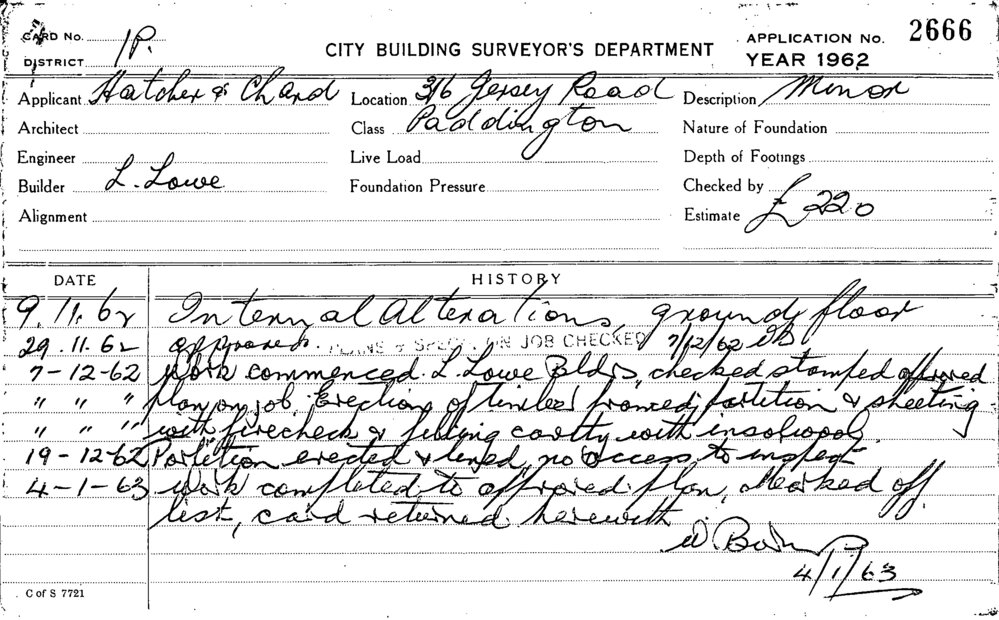 CARD No. 1P.
DISTRICT
CITY BUILDING SURVEYOR'S DEPARTMENT
APPLICATION No. 2666
YEAR 1962
Applicant Hatcher & Chard
Location 3/6 Jersey Road
Description Minor
Architect
Class Paddington
Nature of Foundation
Engineer
Live Load
Depth of Footings
Builder L. Lowe
Foundation Pressure
Checked by
Alignment
Estimate £220
DATE HISTORY
9.11.62 Internal Alterations, ground floor
29.11.62 approved. PLANS & SPECS. ON JOB CHECKED 7/12/62
7-12-62 Work commenced. L. Lowe Bldr, checked stamped approved
" " " plan on job. Erection of timber framed partition & sheeting
" " " with firecheck & filling cavity with
19-12-62 Partition erected & lined, no access to inspect
4-1-63 work completed to approved plan, Marked off
list, card returned herewith
4/1/63
C of S 7721